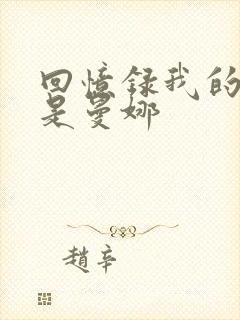 回憶録我的
是曼娜
趙辛